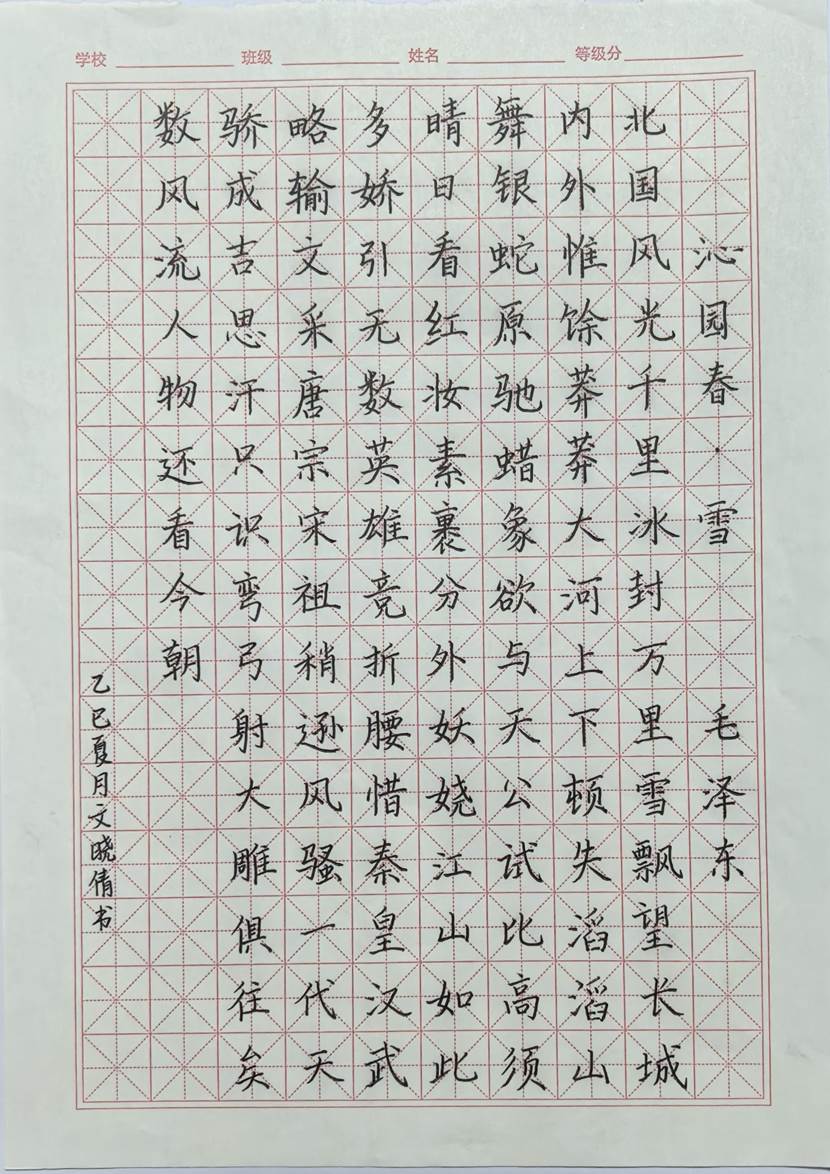 学校 班级 姓名 等级分
沁园春·雪 毛泽东
北国风光千里冰封万里雪飘望长城
内外惟馀莽莽大河上下顿失滔滔山
舞银蛇原驰蜡象欲与天公试比高须
晴日看红妆素裹分外妖娆江山如此
多娇引无数英雄竞折腰惜秦皇汉武
略输文采唐宗宋祖稍逊风骚一代天
骄成吉思汗只识弯弓射大雕俱往矣
数风流人物还看今朝
乙巳夏月文晓倩书